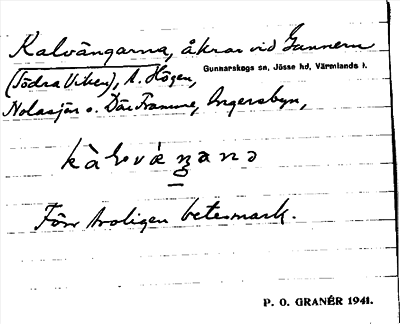 Kalvängarna, åkrar vid Gunnern
(Södra Viken), N. Högen,
Gunnarskogs sn, Jösse hd, Värmlands l.
Nolasjön o. Där Framme, Ingersbyn,
Förr troligen betesmark.
P. O. GRANÉR 1941.